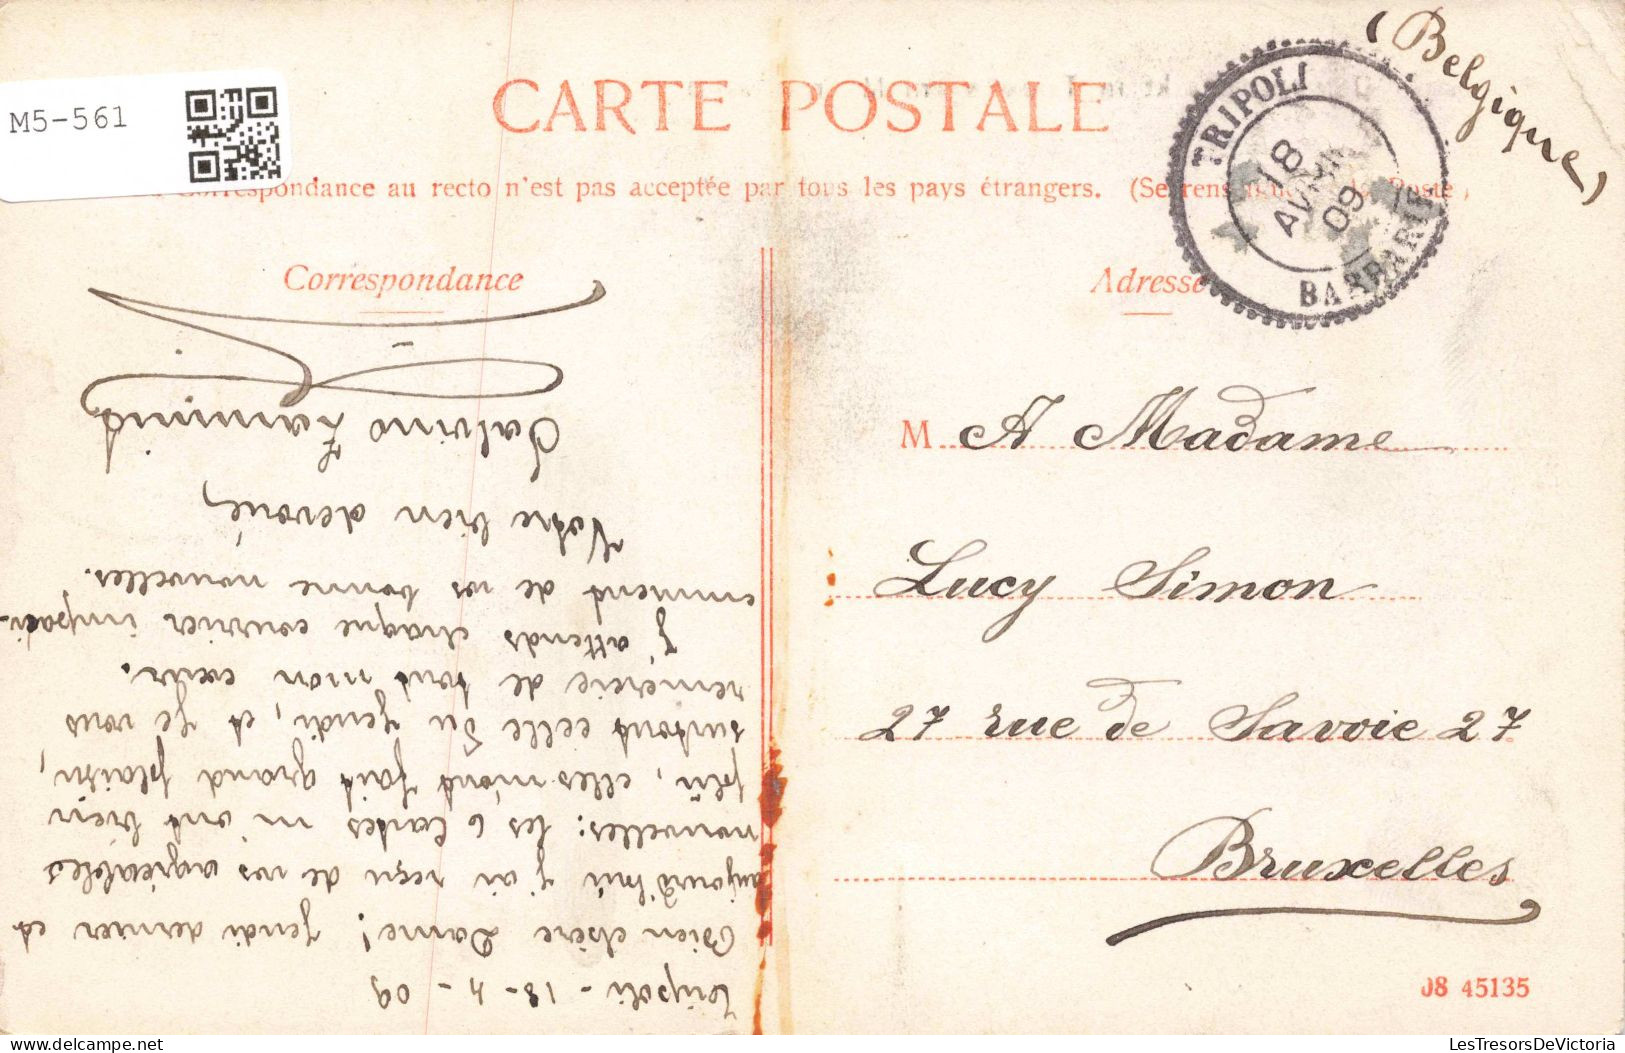 M5-561
CARTE POSTALE
Correspondance au recto n'est pas acceptée par tous les pays étrangers. (Se rens à la Poste)
Correspondance
Adresse
TRIPOLI
18
AVRIL
09
BARBARIE
(Belgique)
M A Madame
Lucy Simon
27 rue de Savoie 27
Bruxelles
08 45135
Tripoli - 18 - 4 - 09
Bien chère Dame! Jeudi dernier et
aujourd'hui j'ai reçu de vos agréables
nouvelles: les 6 Cartes m'ont bien
plû, elles m'ont fait grand plaisir,
surtout celle du Jeudi, et Je vous
remercie de tout mon cœur.
J'attends chaque courrier impati-
emment de vos bonne nouvelles.
Votre bien devoué,
Salvino Zammit
LesTresorsDeVictoria
delcampe.net LesTresorsDeVictoria